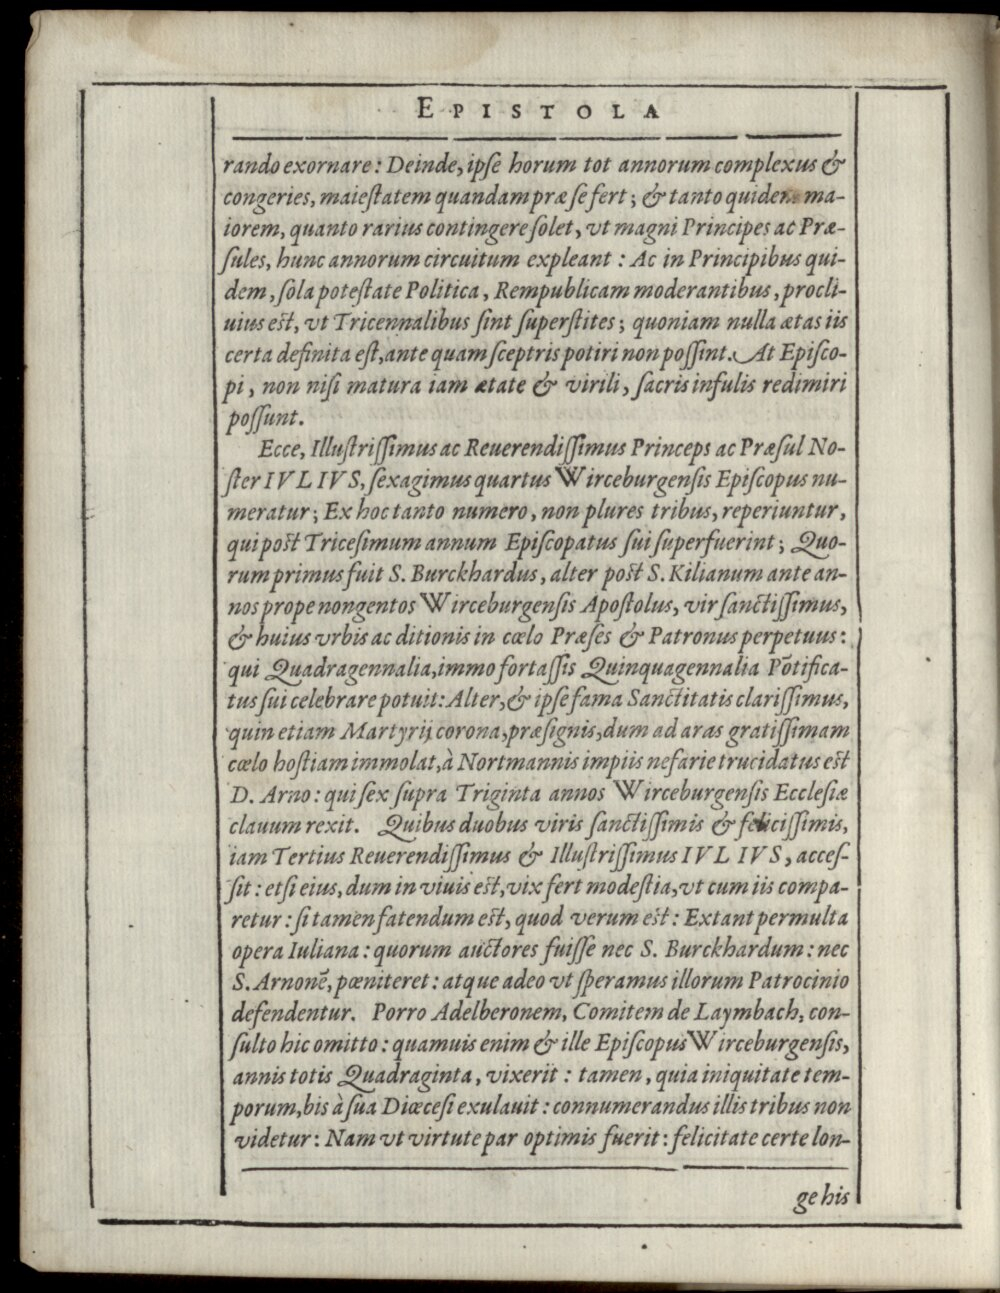 EPISTOLA
rando exornare: Deinde, ipſe horum tot annorum complexus &
congeries, maieſtatem quandam præ ſe fert; & tanto quidem ma-
iorem, quanto rarius contingere ſolet, vt magni Principes ac Præ-
ſules, hunc annorum circuitum expleant: Ac in Principibus qui-
dem, ſola poteſtate Politica, Rempublicam moderantibus, procli-
uius eſt, vt Tricennalibus ſint ſuperſtites; quoniam nulla ætas iis
certa definita eſt, ante quam ſceptris potiri non poſſint. At Epiſco-
pi, non niſi matura iam ætate & virili, ſacris infulis redimiri
poſſunt.
Ecce, Illuſtriſſimus ac Reuerendiſſimus Princeps ac Præſul No-
ſter IVLIVS, ſexagimus quartus Wirceburgenſis Epiſcopus nu-
meratur; Ex hoc tanto numero, non plures tribus, reperiuntur,
qui poſt Triceſimum annum Epiſcopatus ſui ſuperfuerint; Quo-
rum primus fuit S. Burckhardus, alter poſt S. Kilianum ante an-
nos prope nongentos Wirceburgenſis Apoſtolus, vir ſanctiſſimus,
& huius vrbis ac ditionis in cœlo Præſes & Patronus perpetuus:
qui Quadragennalia, immo fortaſſis Quinquagennalia Põtifica-
tus ſui celebrare potuit: Alter, & ipſe fama Sanctitatis clariſſimus,
quin etiam Martyrij corona, præſignis, dum ad aras gratiſſimam
cœlo hoſtiam immolat, à Nortmannis impiis nefarie trucidatus eſt
D. Arno: qui ſex ſupra Triginta annos Wirceburgenſis Eccleſiæ
clauum rexit. Quibus duobus viris ſanctiſſimis & feliciſſimis,
iam Tertius Reuerendiſſimus & Illuſtriſſimus IVLIVS, acceſ-
ſit: etſi eius, dum in viuis eſt, vix fert modeſtia, vt cum iis compa-
retur: ſi tamen fatendum eſt, quod verum eſt: Extant permulta
opera Iuliana: quorum auctores fuiſſe nec S. Burckhardum: nec
S. Arnonẽ, pœniteret: atque adeo vt ſperamus illorum Patrocinio
defendentur. Porro Adelberonem, Comitem de Laymbach, con-
ſulto hic omitto: quamuis enim & ille Epiſcopus Wirceburgenſis,
annis totis Quadraginta, vixerit: tamen, quia iniquitate tem-
porum, bis à ſua Diœceſi exulauit: connumerandus illis tribus non
videtur: Nam vt virtute par optimis fuerit: felicitate certe lon-
ge his